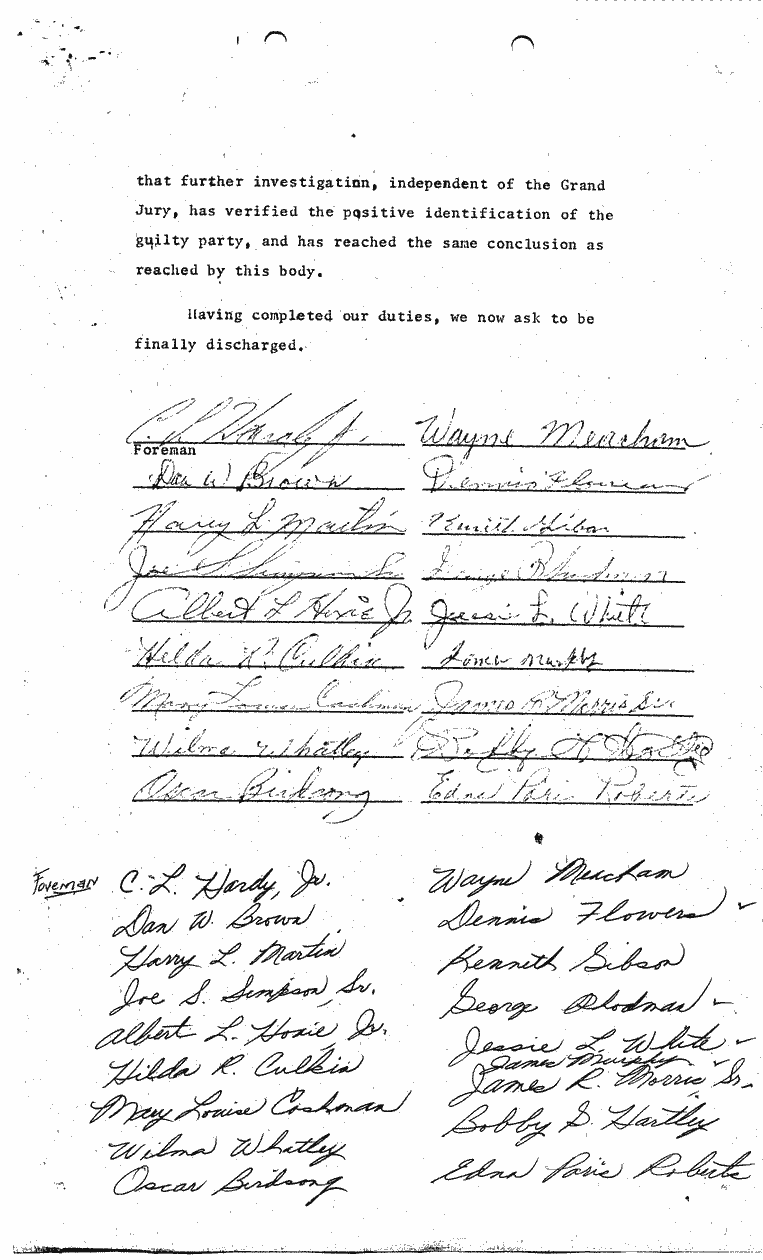 that further investigation, independent of the Grand
Jury, has verified the positive identification of the
guilty party, and has reached the same conclusion as
reached by this body.
Having completed our duties, we now ask to be
finally discharged.
C. L. Hardy, Jr.
Wayne Meacham
Foreman
Dan W Brown
Dennis Flowers
Harry L Martin
Kenneth Gibson
Joe S Simpson Sr
George
Albert L Hoxie Jr.
Jessie L. White
Hilda R. Culkin
James Murphy
Mary Louise Cashman
James R Morris Sr.
Wilma Whatley
Bobby
Oscar Birdsong
Edna Paris Roberts
Foreman
C. L. Hardy, Jr.
Wayne Meacham
Dan W. Brown
Dennis Flowers
Harry L. Martin
Kenneth Gibson
Joe S. Simpson, Sr.
George
Albert L. Hoxie, Jr.
Jessie L. White
James Murphy
Hilda R. Culkin
James R. Morris, Sr.
Mary Louise Cashman
Bobby G. Hartley
Wilma Whatley
Oscar Birdsong
Edna Paris Roberts